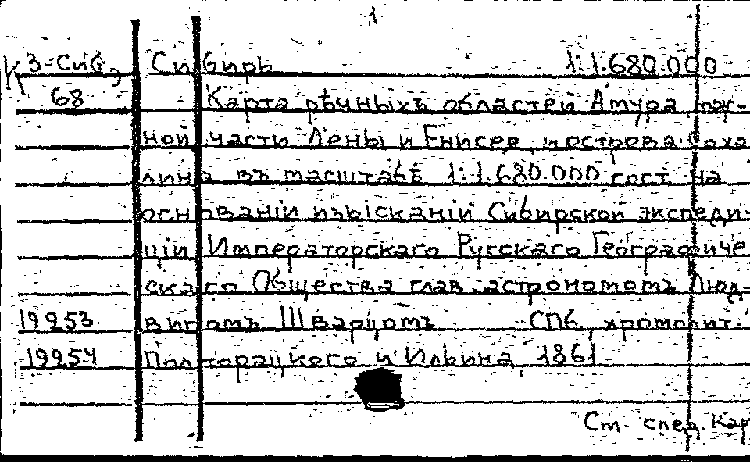 1
К 3-Сиб, Сибирь 1:1.680.000
68 Карта рѣчныхъ областей Амура, юж-
ной части Лены и Енисея, и острова Саха
лина въ масштабѣ 1:1.680.000 сост. на
основаніи изысканій Сибирской экспеди-
ціи Императорскаго Русскаго Географиче
скаго Общества глав. астрономомъ Люд-
19953 вигомъ Шварцомъ СПб, хромолит.
19954 Полторацкого и Ильина, 1861
См. спец. кар